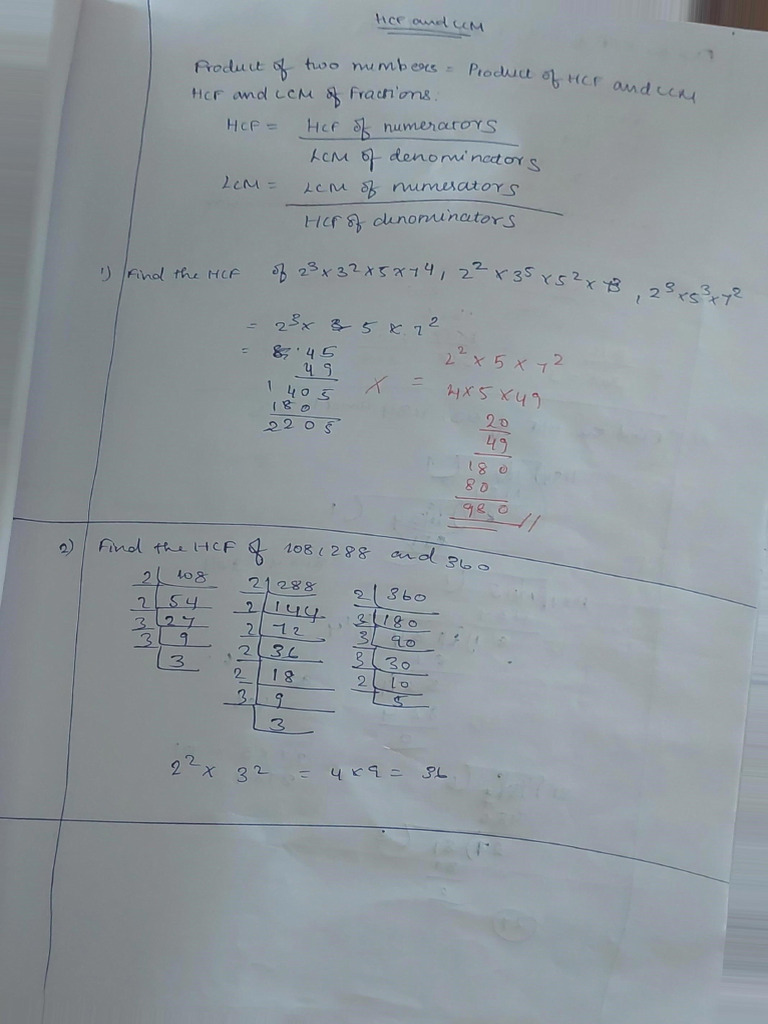 HCF and LCM
Product of two numbers = Product of HCF and LCM
HCF and LCM of Fractions.
HCF = HCF of numerators
LCM of denominators
LCM = LCM of numerators
HCF of denominators
1) Find the HCF of 2³ x 3² x 5 x 7⁴, 2² x 3⁵ x 5² x 7³, 2³ x 5³ x 7²
= 2³ x 5 x 7²
= 8 45
49
405
180
2205
X
= 2² x 5 x 7²
4 x 5 x 49
20
49
180
80
980 //
2) Find the HCF of 108, 288 and 360
2 108
2 54
3 27
3 9
3
2 288
2 144
2 72
2 36
2 18
3 9
3
2 360
3 180
3 90
3 30
2 10
5
2² x 3² = 4 x 9 = 36